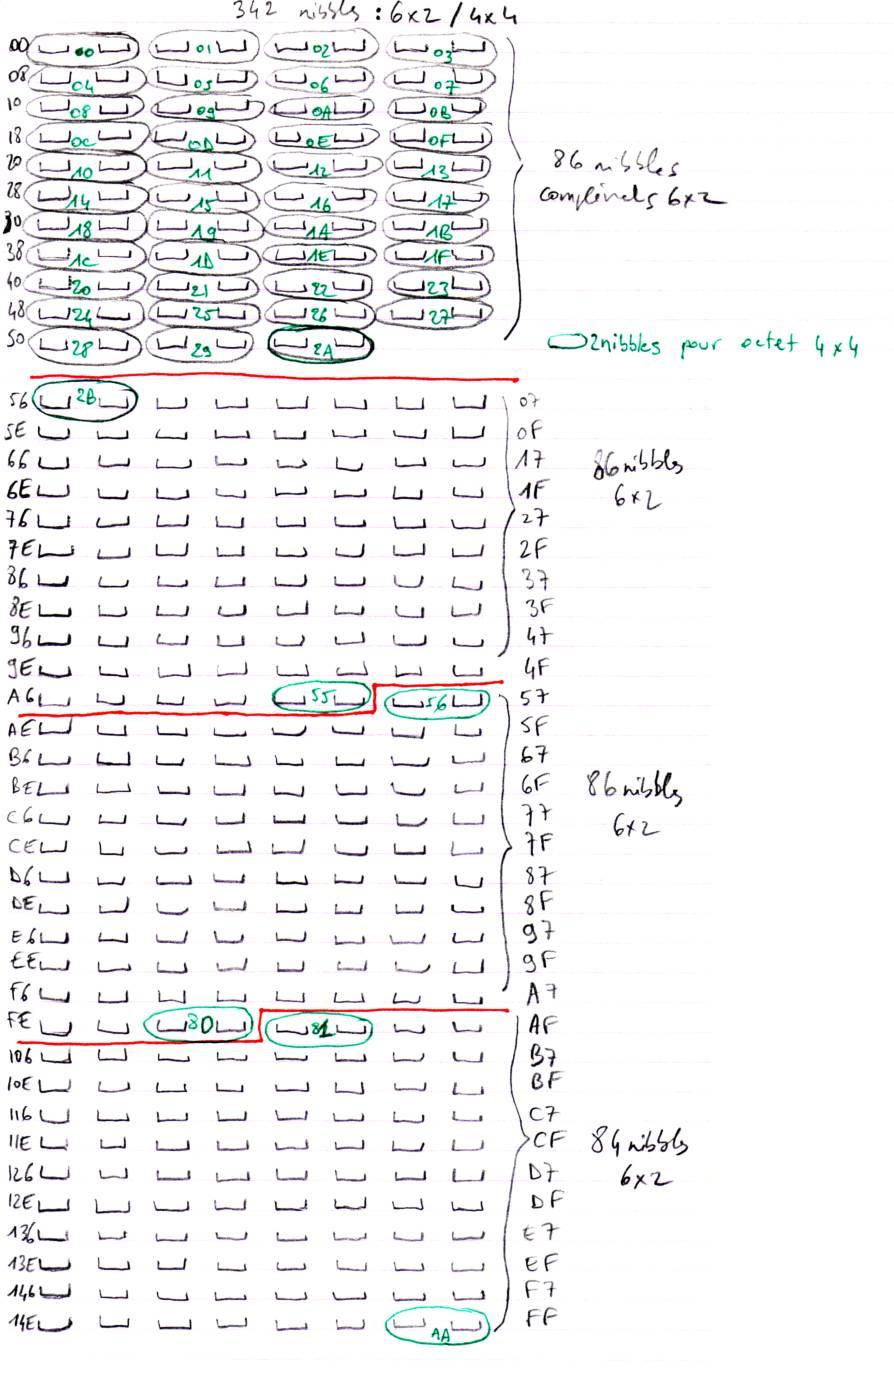 342 nibbles : 6x2 / 4x4
00 00 01 02 03
08 04 05 06 07
10 08 09 0A 0B
18 0C 0D 0E 0F
20 10 11 12 13
86 nibbles
28 14 15 16 17
complémets 6x2
30 18 19 1A 1B
38 1C 1D 1E 1F
40 20 21 22 23
48 24 25 26 27
50 28 29 2A
2nibbles pour octet 4x4
56 2B 07
5E 0F
66 17
86 nibbles
6E 1F
6x2
76 27
7E 2F
86 37
8E 3F
96 47
9E 4F
A6 55 56 57
AE 5F
B6 67
BE 6F
86 nibbles
C6 77
6x2
CE 7F
D6 87
DE 8F
E6 97
EE 9F
F6 A7
FE 80 81 AF
106 B7
10E BF
116 C7
11E CF
84 nibbles
126 D7
6x2
12E DF
136 E7
13E EF
146 F7
14E AA FF